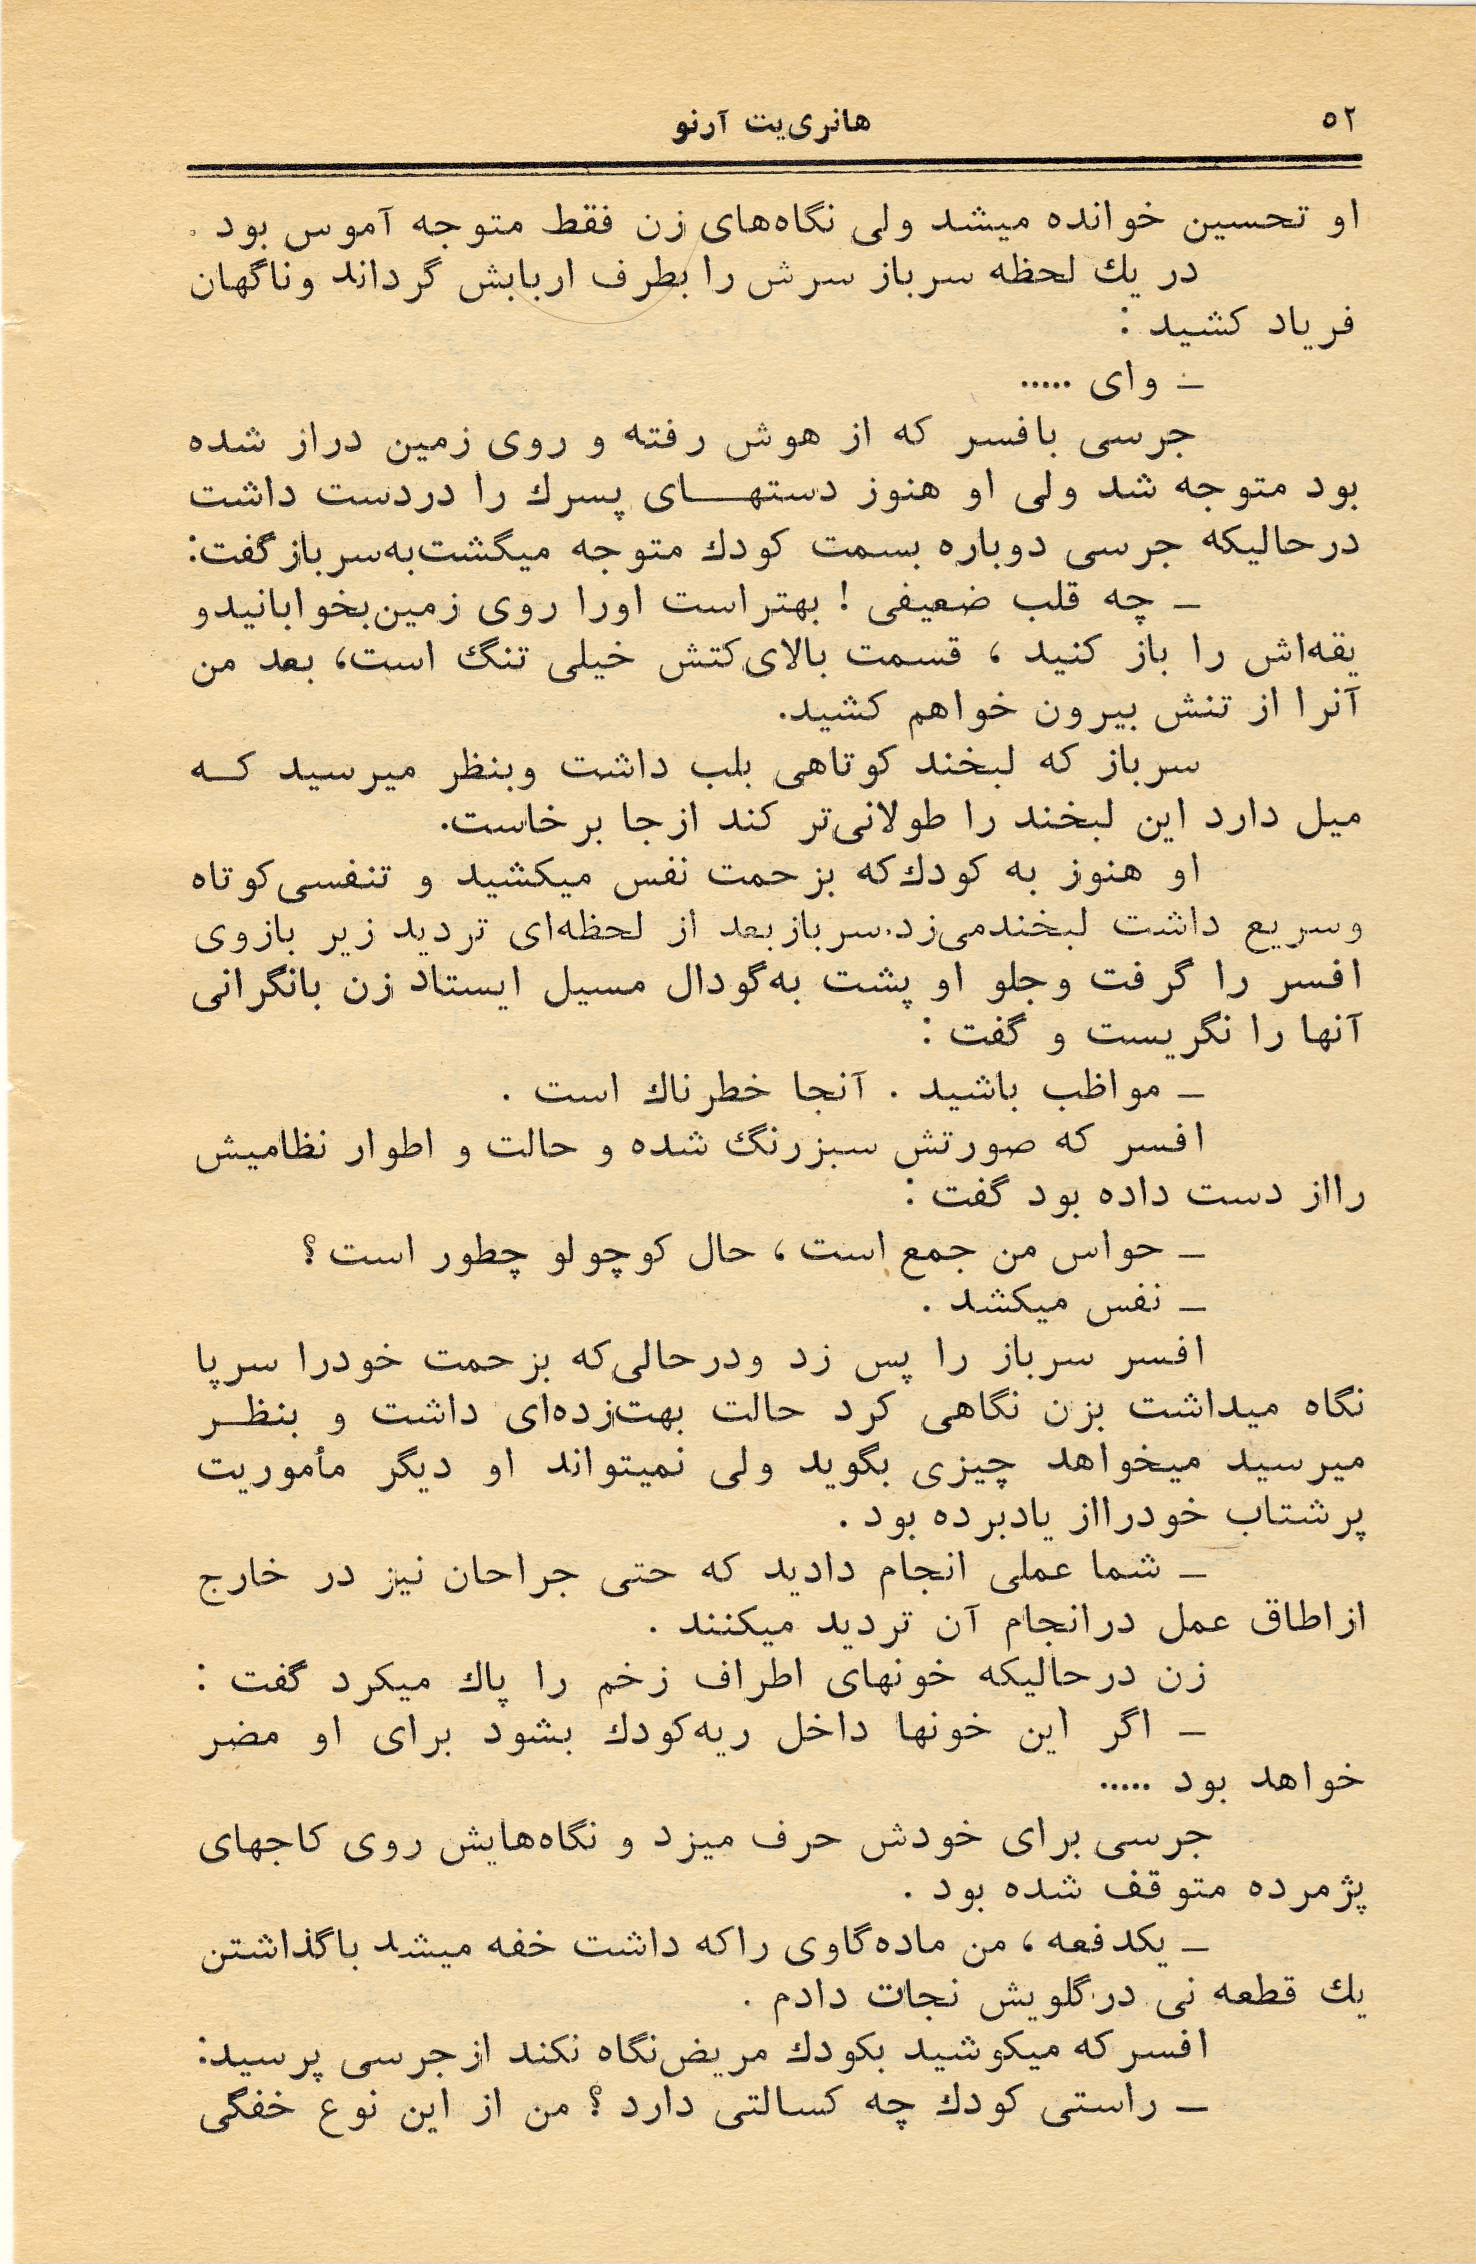 ۵۲
هانری‌یت آرنو
او تحسین خوانده میشد ولی نگاه‌های زن فقط متوجه آموس بود .
در یك لحظه سرباز سرش را بطرف اربابش گرداند وناگهان
فریاد کشید :
ـ وای .....
جرسی بافسر که از هوش رفته و روی زمین دراز شده
بود متوجه شد ولی او هنوز دستهـــای پسرك را دردست داشت
درحالیکه جرسی دوباره بسمت کودك متوجه میگشت‌به‌سرباز گفت:
ـ چه قلب ضعیفی ! بهتراست اورا روی زمین‌بخوابانیدو
یقه‌اش را باز کنید ، قسمت بالای‌کتش خیلی تنگ است، بعد من
آنرا از تنش بیرون خواهم کشید.
سرباز که لبخند کوتاهی بلب داشت وبنظر میرسید کـه
میل دارد این لبخند را طولانی‌تر کند ازجا برخاست.
او هنوز به کودك‌که بزحمت نفس میکشید و تنفسی‌کوتاه
وسریع داشت لبخندمی‌زد.سربازبعد از لحظه‌ای تردید زیر بازوی
افسر را گرفت وجلو او پشت به‌گودال مسیل ایستاد زن بانگرانی
آنها را نگریست و گفت :
ـ مواظب باشید . آنجا خطرناك است .
افسر که صورتش سبزرنگ شده و حالت و اطوار نظامیش
رااز دست داده بود گفت :
ـ حواس من جمع است ، حال کوچولو چطور است ؟
ـ نفس میکشد .
افسر سرباز را پس زد ودرحالی‌که بزحمت خودرا سرپا
نگاه میداشت بزن نگاهی کرد حالت بهت‌زده‌ای داشت و بنظـر
میرسید میخواهد چیزی بگوید ولی نمیتواند او دیگر مأموریت
پرشتاب خودرااز یادبرده بود .
ـ شما عملی انجام دادید که حتی جراحان نیز در خارج
ازاطاق عمل درانجام آن تردید میکنند .
زن درحالیکه خونهای اطراف زخم را پاك میکرد گفت :
ـ اگر این خونها داخل ریه‌کودك بشود برای او مضر
خواهد بود .....
جرسی برای خودش حرف میزد و نگاه‌هایش روی کاجهای
پژمرده متوقف شده بود .
ـ یکدفعه ، من ماده‌گاوی راکه داشت خفه میشد باگذاشتن
یك قطعه نی درگلویش نجات دادم .
افسر که میکوشید بکودك مریض‌نگاه نکند ازجرسی پرسید:
ـ راستی کودك چه کسالتی دارد ؟ من از این نوع خفگی